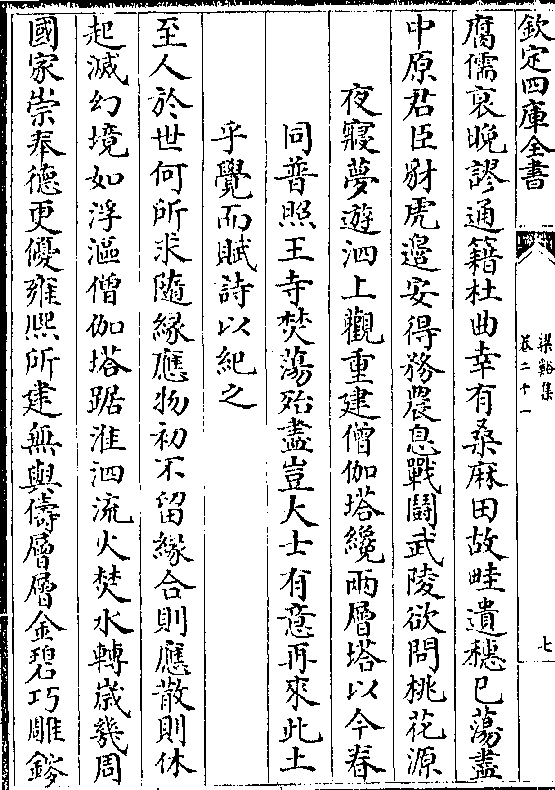 欽定四庫全書
梁谿集
卷二十一
七
腐儒衰晚謬通籍杜曲幸有桑麻田故畦遺穗已蕩盡
中原君臣豺虎邉安得務農息戰鬪武陵欲問桃花源
夜寢夢遊泗上觀重建僧伽塔纔兩層塔以今春
同普照王寺焚蕩殆盡豈大士有意再來此土
乎覺而賦詩以紀之
至人於世何所求隨緣應物初不留緣合則應散則休
起滅幻境如浮漚僧伽塔踞淮泗流火焚水轉歲幾周
國家崇奉德更優雍熙所建無與儔層層金碧巧雕鎪